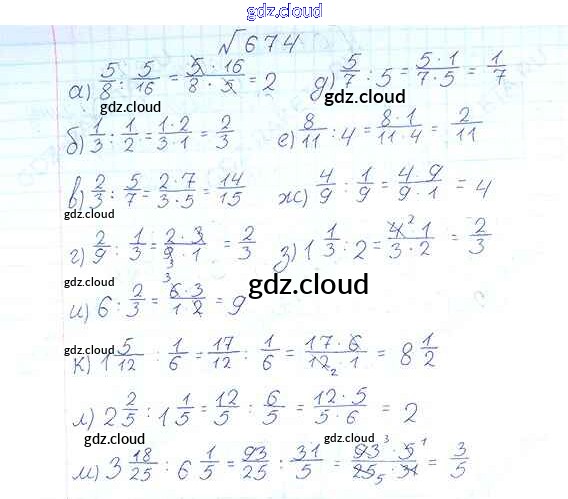 gdz.cloud
√674
а) 5/8 : 5/16 = 5·16/8·5 = 2 д) 5/7 : 5 = 5·1/7·5 = 1/7
gdz.cloud gdz.cloud
б) 1/3 : 1/2 = 1·2/3·1 = 2/3 е) 8/11 : 4 = 8·1/11·4 = 2/11
в) 2/3 : 5/7 = 2·7/3·5 = 14/15 ж) 4/9 : 1/9 = 4·9/9·1 = 4
gdz.cloud gdz.cloud
г) 2/9 : 1/3 = 2·3/9·1 = 2/3 з) 1 1/3 : 2 = 4·1/3·2 = 2/3
gdz.cloud
и) 6 : 2/3 = 6·3/1·2 = 9
gdz.cloud
к) 1 5/12 : 1/6 = 17/12 : 1/6 = 17·6/12·1 = 8 1/2
л) 2 2/5 : 1 1/5 = 12/5 : 6/5 = 12·5/5·6 = 2
gdz.cloud gdz.cloud
м) 3 18/25 : 6 1/5 = 93/25 : 31/5 = 93·5/25·31 = 3/5
gdz.cloud